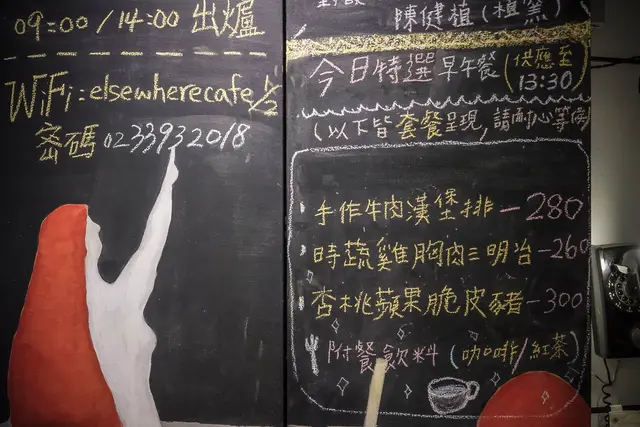 09:00 / 14:00 出爐
WiFi:elsewherecafe 1/2
密碼 0233932018
陳健植(植窯)
今日特選早午餐(供應至13:30)
(以下皆套餐呈現,請耐心等候
手作牛肉漢堡排-280
時蔬雞胸肉三明治-260
杏桃蘋果脆皮豬-300
附餐飲料(咖啡/紅茶)